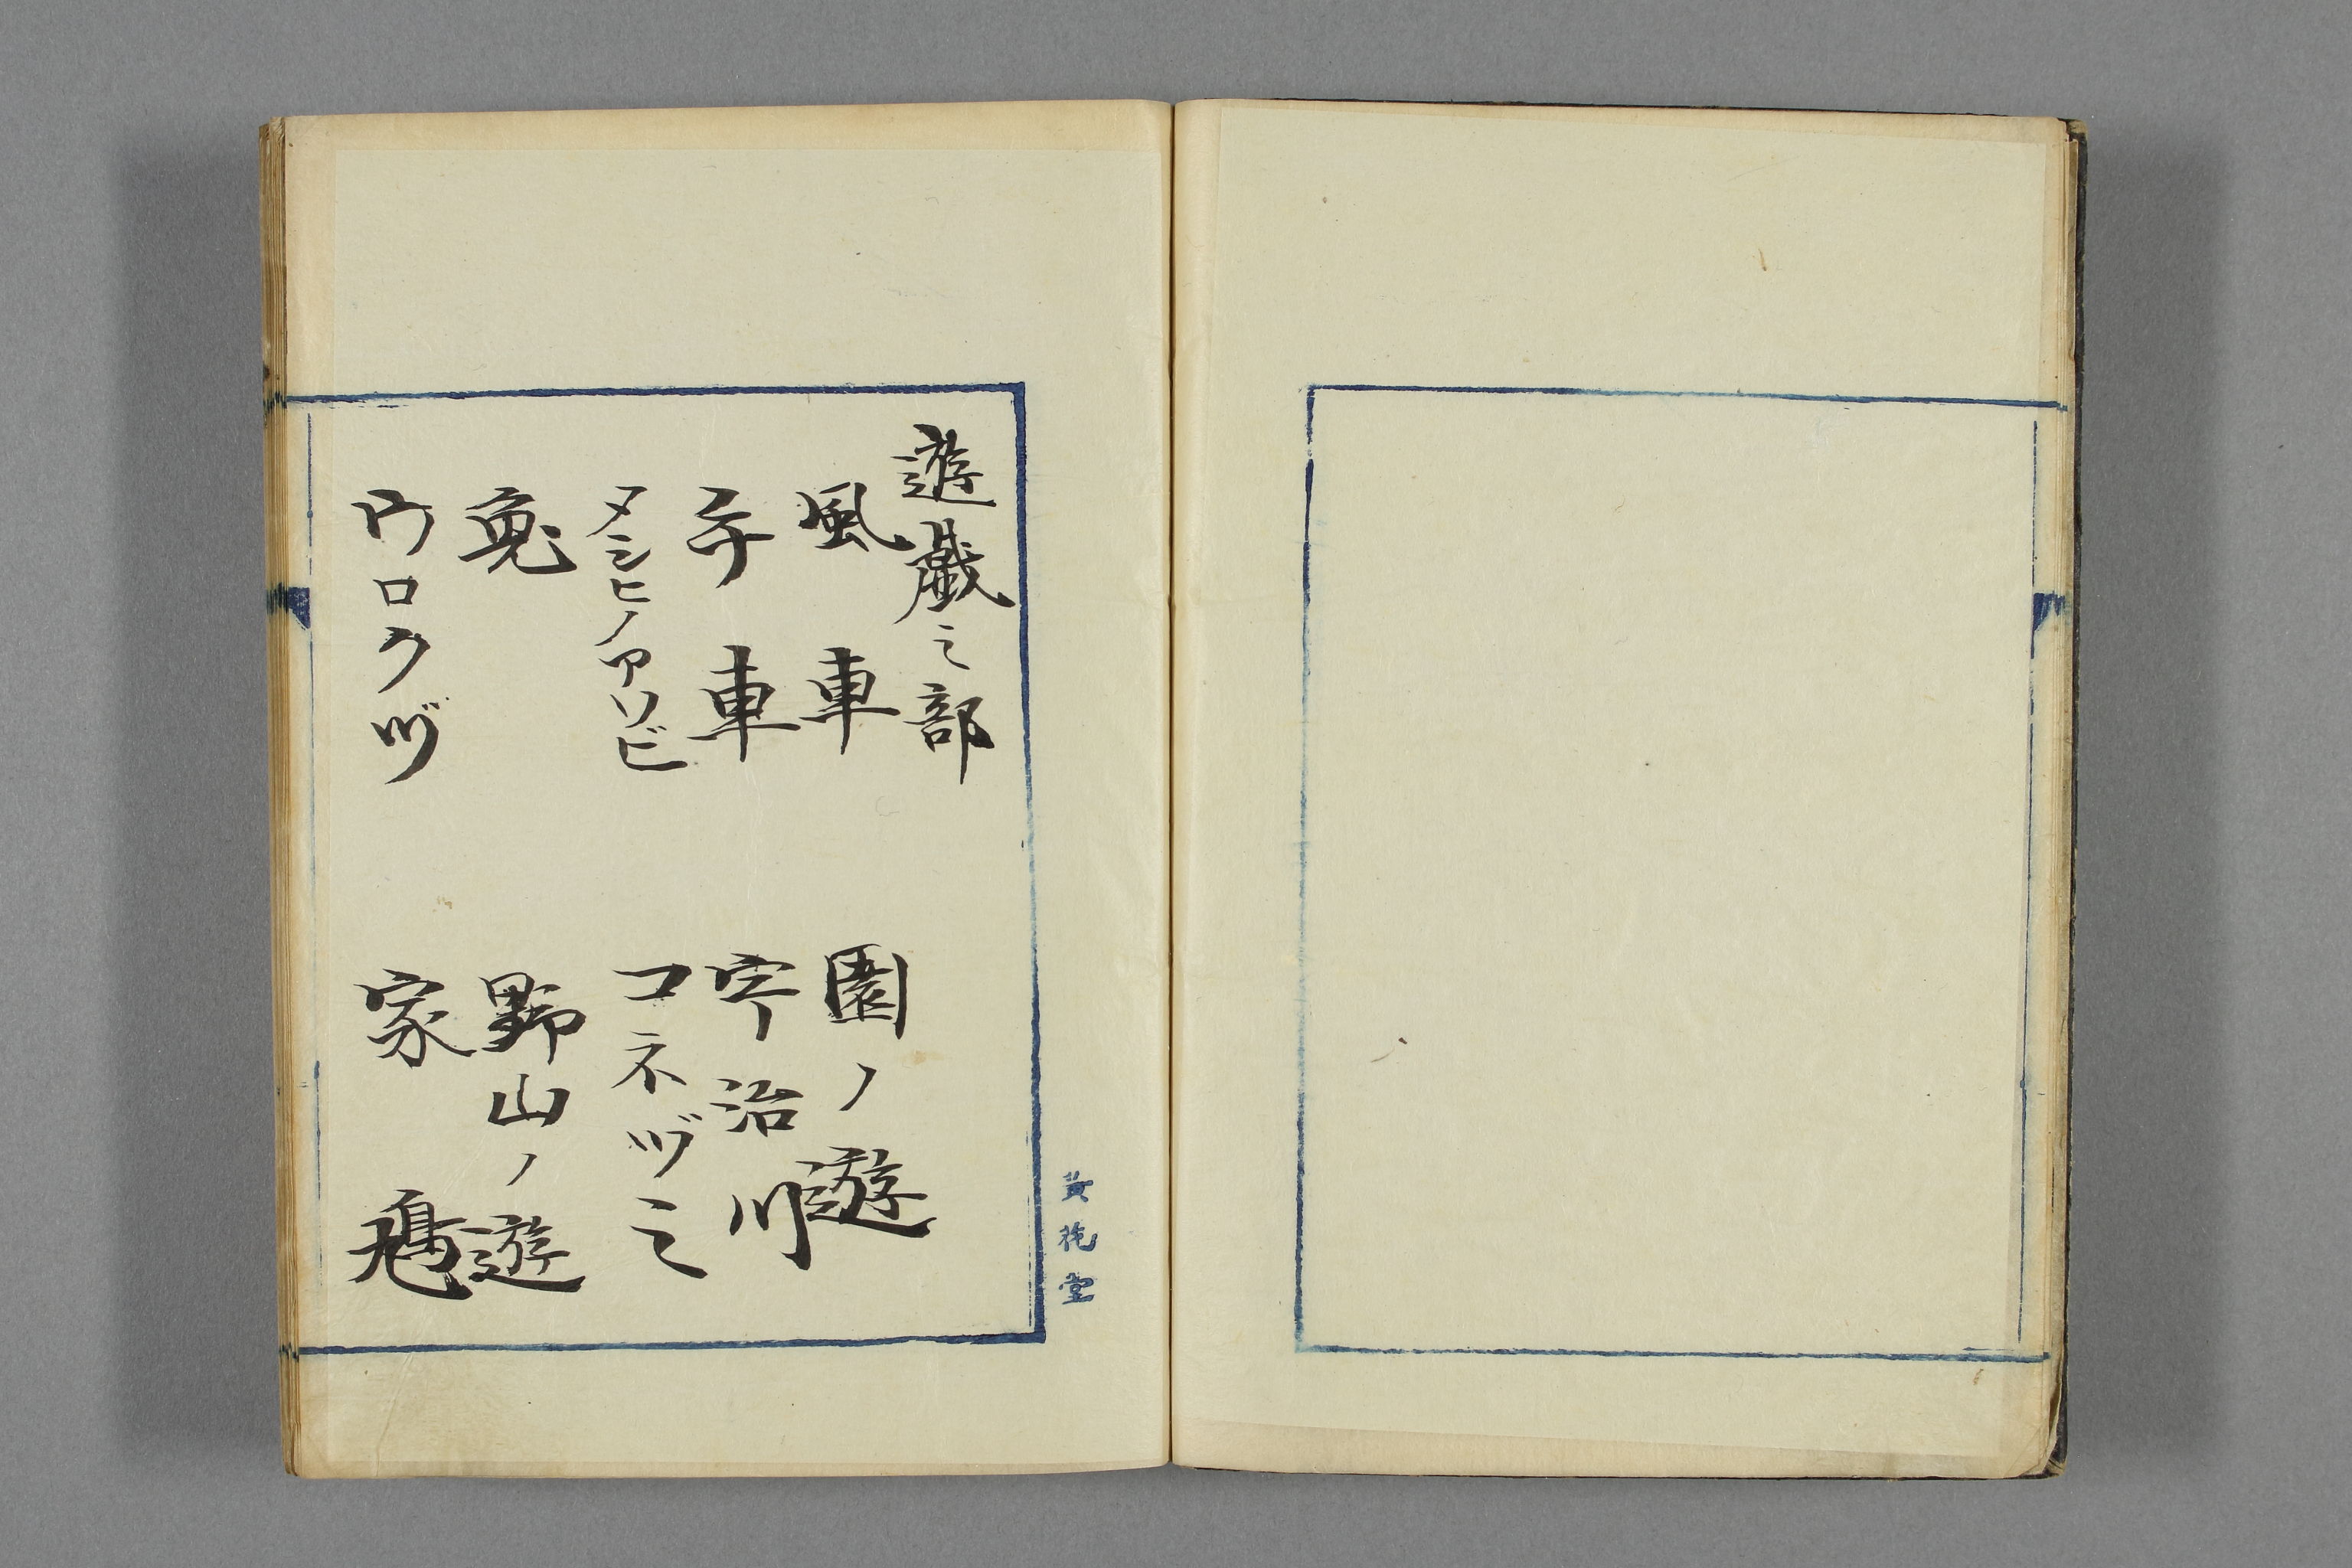 遊戯之部
風車
子車
タシヒノアソビ
兔
ウロクヅ
園ノ遊
宇治川
コネヅミ
野山ノ遊
家鳬
黄花堂